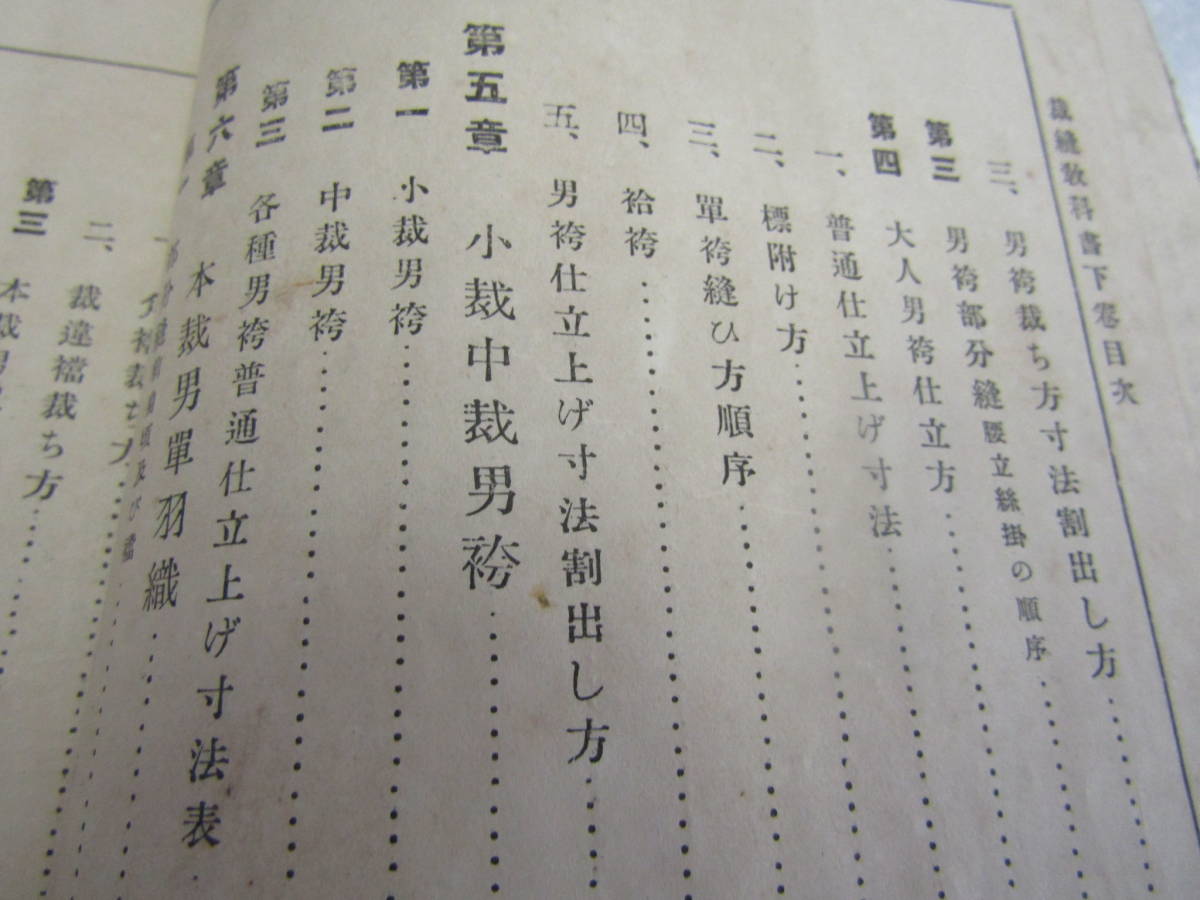 裁縫敎科書下卷目次
三、男袴裁ち方寸法割出し方
男袴部分縫腰立絲掛の順序
第三 大人男袴仕立方
第四 普通仕立上げ寸法
一、
二、標附け方
三、單袴縫ひ方順序
四、袷袴
五、男袴仕立上げ寸法割出し方
第五章 小裁中裁男袴
第一 小裁男袴
第二 中裁男袴
第三 各種男袴普通仕立上げ寸法表
第六章 本裁男單羽織
二、裁違襠裁ち方
第三 本裁男